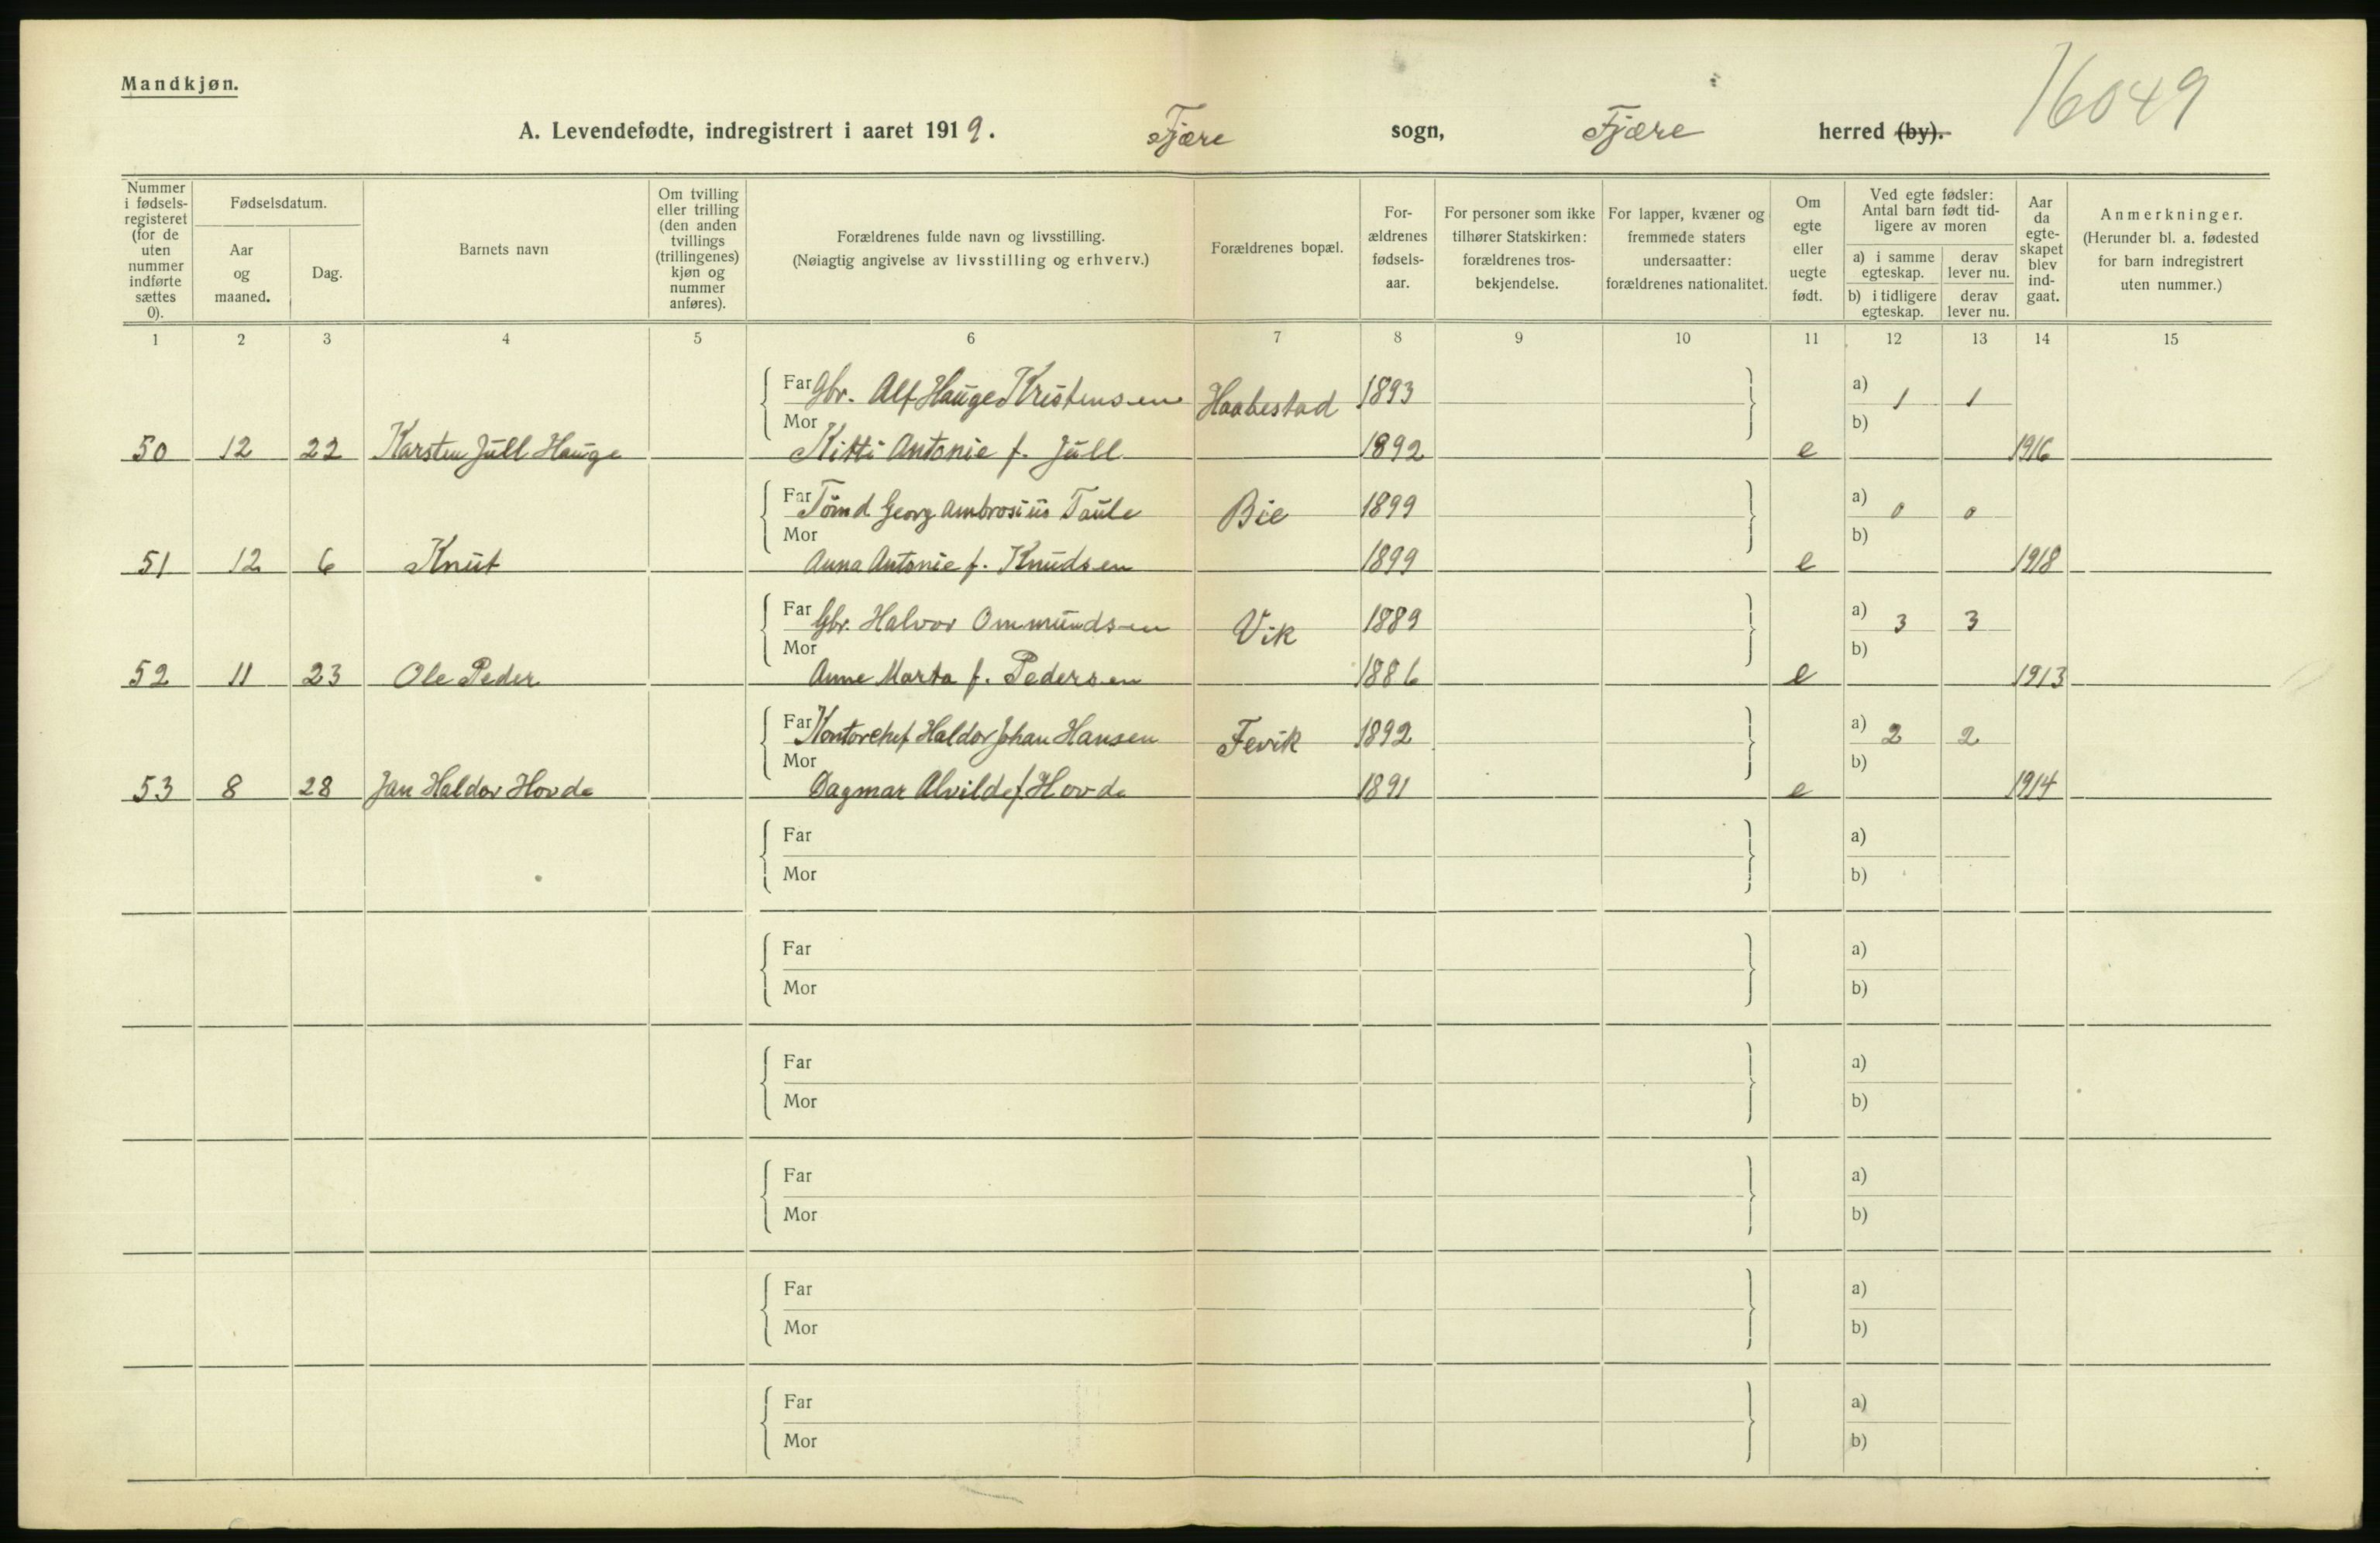 Mandkjøn.
16049
A. Levendefødte, indregistrert i aaret 1919. Fjære sogn, Fjære herred (by).
Nummer i fødsels-registeret (for de uten nummer indførte sættes 0).
Fødselsdatum.
Aar og maaned.
Dag.
Barnets navn
Om tvilling eller trilling (den anden tvillings (trillingenes) kjøn og nummer anføres).
Forældrenes fulde navn og livsstilling.
(Nøiagtig angivelse av livsstilling og erhverv.)
Forældrenes bopæl.
For-ældrenes fødsels-aar.
For personer som ikke tilhører Statskirken: forældrenes tros-bekjendelse.
For lapper, kvæner og fremmede staters undersaatter: forældrenes nationalitet.
Om egte eller uegte født.
Ved egte fødsler: Antal barn født tid-ligere av moren
a) i samme egteskap. derav lever nu.
b) i tidligere egteskap. derav lever nu.
Aar da egte-skapet blev ind-gaat.
Anmerkninger.
(Herunder bl. a. fødested for barn indregistrert uten nummer.)
1 2 3 4 5 6 7 8 9 10 11 12 13 14 15
Far Gbr. Alf Hauge Kristensen Haabestad 1893 a) 1 1
Mor b)
50 12 22 Karsten Jull Hauge Kitti Antonie f. Jull 1892 e 1916
Far Tømd Georg Ambrosius Taule Bie 1899 a) 0 0
Mor b)
51 12 6 Knut Anna Antonie f. Knudsen 1899 e 1918
Far Gbr. Halvor Ommundsen Vik 1889 a) 3 3
Mor b)
52 11 23 Ole Peder Anne Marta f. Pedersen 1886 e 1913
Far Kontorchef Haldor Johan Hansen Fevik 1892 a) 2 2
Mor b)
53 8 28 Jan Haldor Hovde Dagmar Alvilde f. Hovde 1891 e 1914
Far a)
Mor b)
Far a)
Mor b)
Far a)
Mor b)
Far a)
Mor b)
Far a)
Mor b)
Far a)
Mor b)